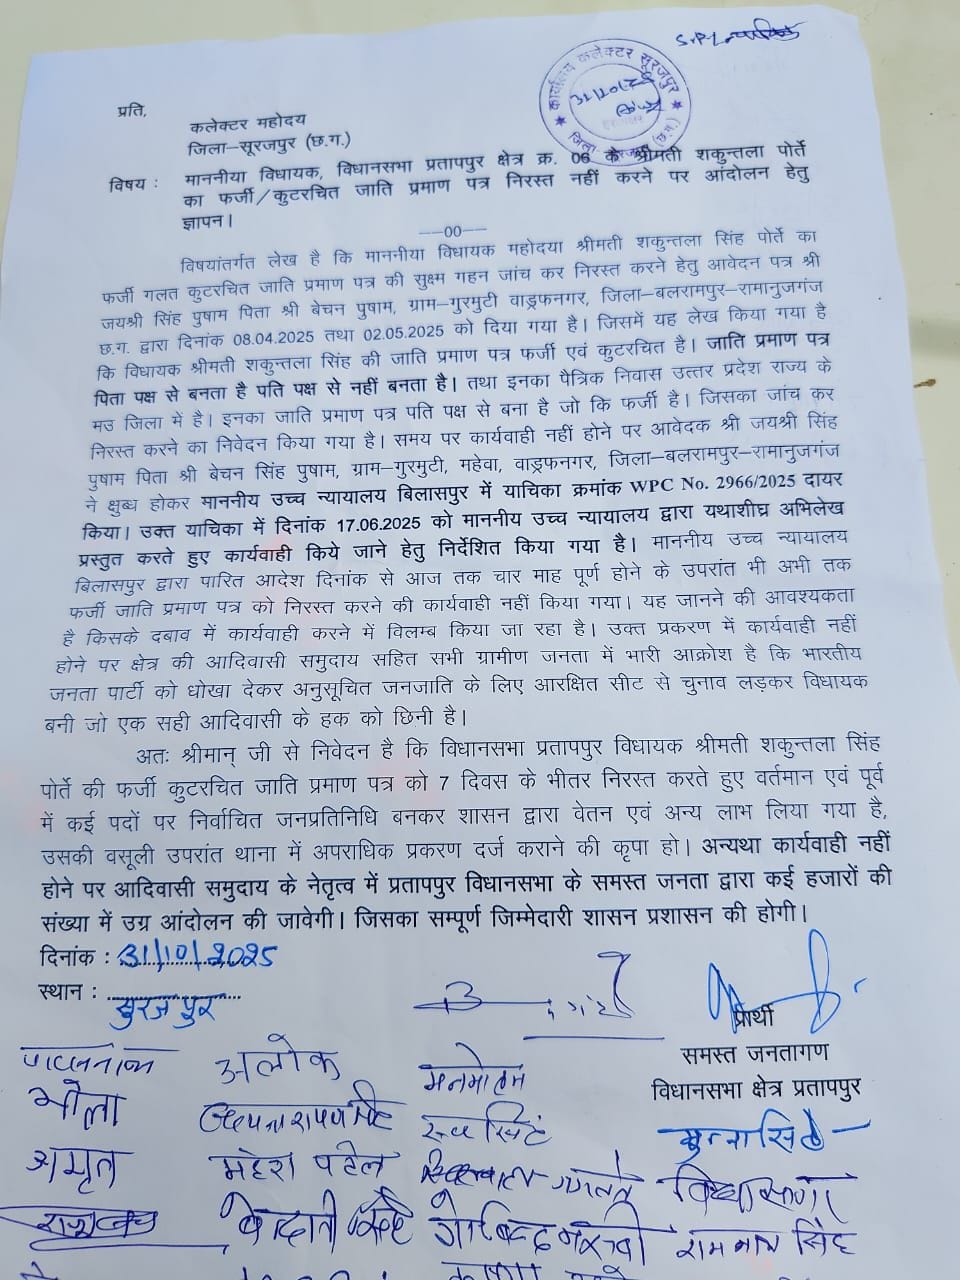 प्रति,
कार्यालय कलेक्टर सूरजपुर
कलेक्टर महोदय
जिला–सूरजपुर (छ.ग.)
विषय : माननीया विधायक, विधानसभा प्रतापपुर क्षेत्र क्र. 06 के श्रीमती शकुन्तला पोर्ते
का फर्जी/कुटरचित जाति प्रमाण पत्र निरस्त नहीं करने पर आंदोलन हेतु
ज्ञापन।
—00—
विषयांतर्गत लेख है कि माननीया विधायक महोदया श्रीमती शकुन्तला सिंह पोर्ते का
फर्जी गलत कुटरचित जाति प्रमाण पत्र की सुक्ष्म गहन जांच कर निरस्त करने हेतु आवेदन पत्र श्री
जयश्री सिंह पुषाम पिता श्री बेचन पुषाम, ग्राम–गुरमुटी वाड्रफनगर, जिला–बलरामपुर–रामानुजगंज
छ.ग. द्वारा दिनांक 08.04.2025 तथा 02.05.2025 को दिया गया है। जिसमें यह लेख किया गया है
कि विधायक श्रीमती शकुन्तला सिंह की जाति प्रमाण पत्र फर्जी एवं कुटरचित है। जाति प्रमाण पत्र
पिता पक्ष से बनता है पति पक्ष से नहीं बनता है। तथा इनका पैत्रिक निवास उत्तर प्रदेश राज्य के
मउ जिला में है। इनका जाति प्रमाण पत्र पति पक्ष से बना है जो कि फर्जी है। जिसका जांच कर
निरस्त करने का निवेदन किया गया है। समय पर कार्यवाही नहीं होने पर आवेदक श्री जयश्री सिंह
पुषाम पिता श्री बेचन सिंह पुषाम, ग्राम–गुरमुटी, महेवा, वाड्रफनगर, जिला–बलरामपुर–रामानुजगंज
ने क्षुब्ध होकर माननीय उच्च न्यायालय बिलासपुर में याचिका क्रमांक WPC No. 2966/2025 दायर
किया। उक्त याचिका में दिनांक 17.06.2025 को माननीय उच्च न्यायालय द्वारा यथाशीघ्र अभिलेख
प्रस्तुत करते हुए कार्यवाही किये जाने हेतु निर्देशित किया गया है। माननीय उच्च न्यायालय
बिलासपुर द्वारा पारित आदेश दिनांक से आज तक चार माह पूर्ण होने के उपरांत भी अभी तक
फर्जी जाति प्रमाण पत्र को निरस्त करने की कार्यवाही नहीं किया गया। यह जानने की आवश्यकता
है किसके दबाव में कार्यवाही करने में विलम्ब किया जा रहा है। उक्त प्रकरण में कार्यवाही नहीं
होने पर क्षेत्र की आदिवासी समुदाय सहित सभी ग्रामीण जनता में भारी आक्रोश है कि भारतीय
जनता पार्टी को धोखा देकर अनुसूचित जनजाति के लिए आरक्षित सीट से चुनाव लड़कर विधायक
बनी जो एक सही आदिवासी के हक को छिनी है।
अतः श्रीमान् जी से निवेदन है कि विधानसभा प्रतापपुर विधायक श्रीमती शकुन्तला सिंह
पोर्ते की फर्जी कुटरचित जाति प्रमाण पत्र को 7 दिवस के भीतर निरस्त करते हुए वर्तमान एवं पूर्व
में कई पदों पर निर्वाचित जनप्रतिनिधि बनकर शासन द्वारा वेतन एवं अन्य लाभ लिया गया है,
उसकी वसूली उपरांत थाना में अपराधिक प्रकरण दर्ज कराने की कृपा हो। अन्यथा कार्यवाही नहीं
होने पर आदिवासी समुदाय के नेतृत्व में प्रतापपुर विधानसभा के समस्त जनता द्वारा कई हजारों की
संख्या में उग्र आंदोलन की जावेगी। जिसका सम्पूर्ण जिम्मेदारी शासन प्रशासन की होगी।
दिनांक : 31/10/2025
स्थान : सुरजपुर
प्रार्थी
समस्त जनतागण
विधानसभा क्षेत्र प्रतापपुर
अलोक मनमोहन
भोला
मुन्ना सिंह
अमृत महेश पटेल
गोबिन्द रामनाथ सिंह